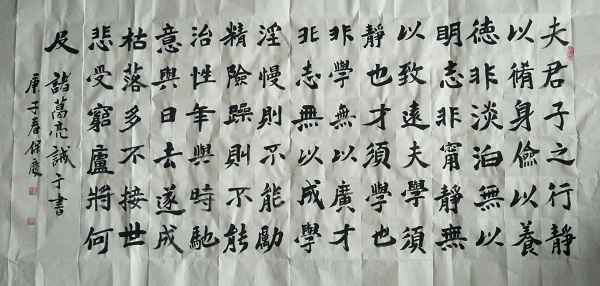 夫君子之行靜
以脩身儉以養
德非淡泊無以
明志非甯靜無
以致遠夫學須
靜也才須學也
非學無以廣才
非志無以成學
淫慢則不能勵
精險躁則不能
治性年與時馳
意與日去遂成
枯落多不接世
悲受窮廬將何
及
諸葛亮誡子書
庚子春保慶